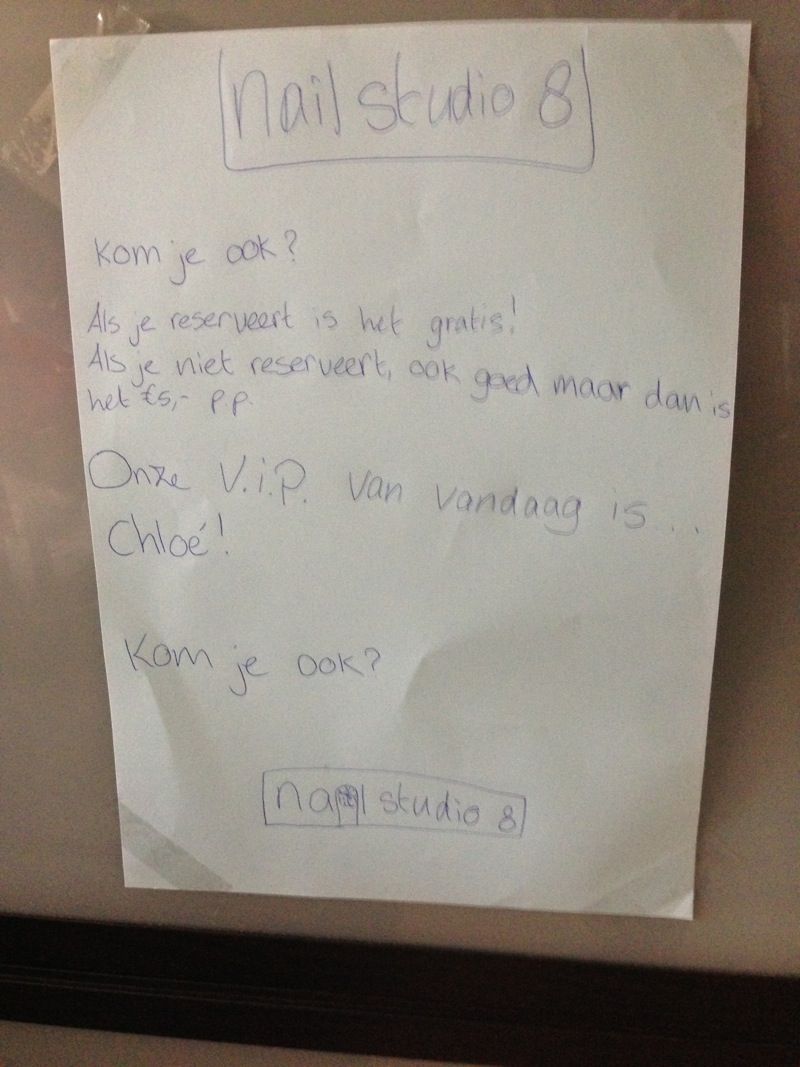 nail studio 8
Kom je ook?
Als je reserveert is het gratis!
Als je niet reserveert, ook goed maar dan is
het €5,- p.p.
Onze V.i.P. van vandaag is...
Chloé!
Kom je ook?
nail studio 8